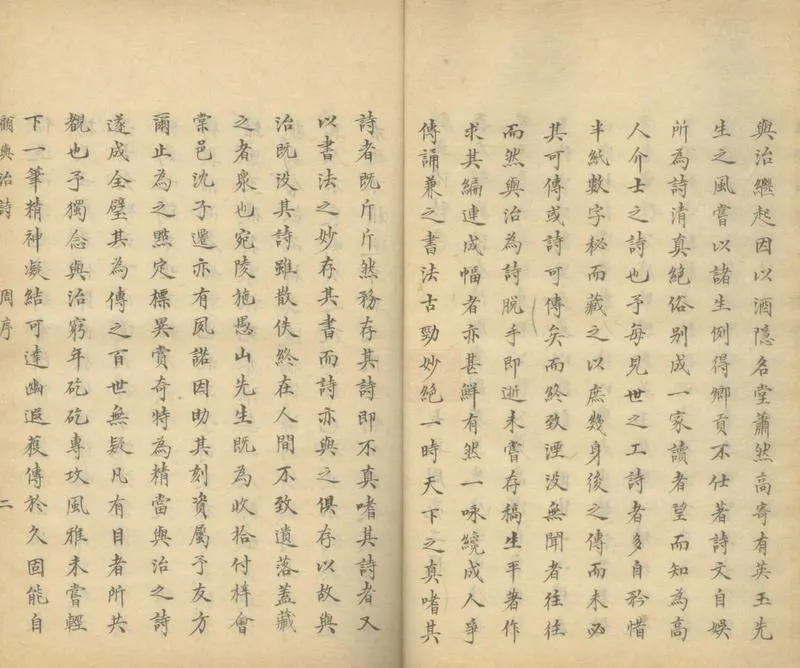 與治繼起因以酒隱名堂蕭然高寄有英玉先
生之風嘗以諸生例得鄉貢不仕著詩文自娛
所為詩清真絕俗別成一家讀者望而知為高
人介士之詩也予每見世之工詩者多自矜惜
半紙數字秘而藏之以庶幾身後之傳而未必
其可傳或詩可傳矣而終致湮沒無聞者往往
而然與治為詩脫手即逝未嘗存稿生平著作
求其編連成幅者亦甚鮮有然一咏纔成人爭
傳誦兼之書法古勁妙絕一時天下之真嗜其
詩者既斤斤然務存其詩即不真嗜其詩者又
以書法之妙存其書而詩亦與之俱存以故與
治既沒其詩雖散佚終在人間不致遺落蓋藏
之者衆也宛陵施愚山先生既為收拾付梓會
棠邑沈子遷亦有夙諾因助其刻資屬予友方
爾止為之㸃定標異賞奇特為精當與治之詩
遂成全璧其為傳之百世無疑凡有目者所共
覩也予獨念與治窮年矻矻專攻風雅未嘗輕
下一筆精神凝結可達幽遐獲傳於久固能自
顧與治詩 周序 二